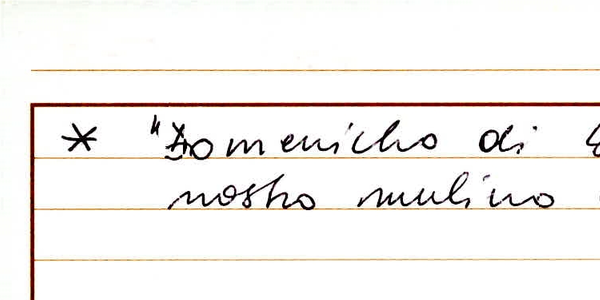 * "Domenicho di
nostro mulino